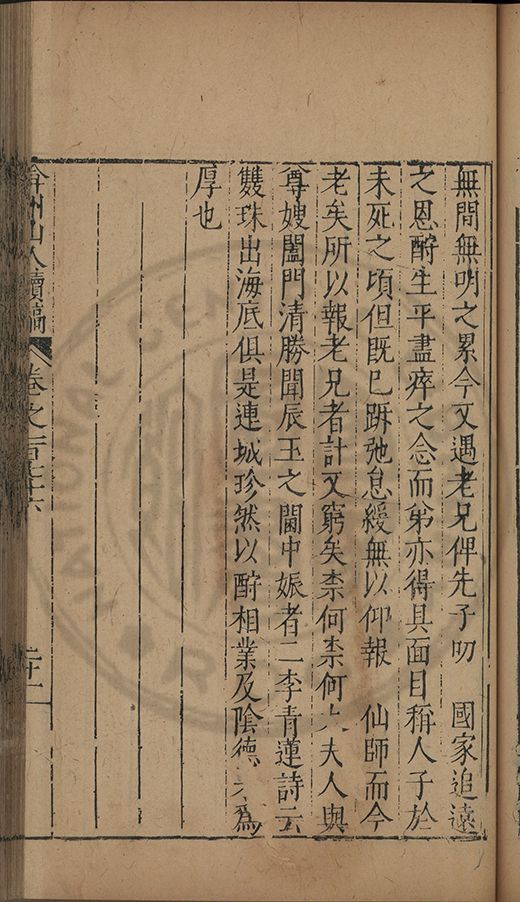 無間無明之累今又遇老兄俾先子叨　國家追遠
之恩酧生平盡瘁之念而弟亦得具面目稱人子於
未死之頃但既已跅弛息緩無以仰報　仙師而今
老矣所以報老兄者計又窮矣柰何柰何夫人與
尊嫂闔門清勝聞辰玉之閫中娠者二李青蓮詩云
雙珠出海底俱是連城珍然以酧相業及陰德為
厚也
州山人續稿　卷之百七十六　二十二